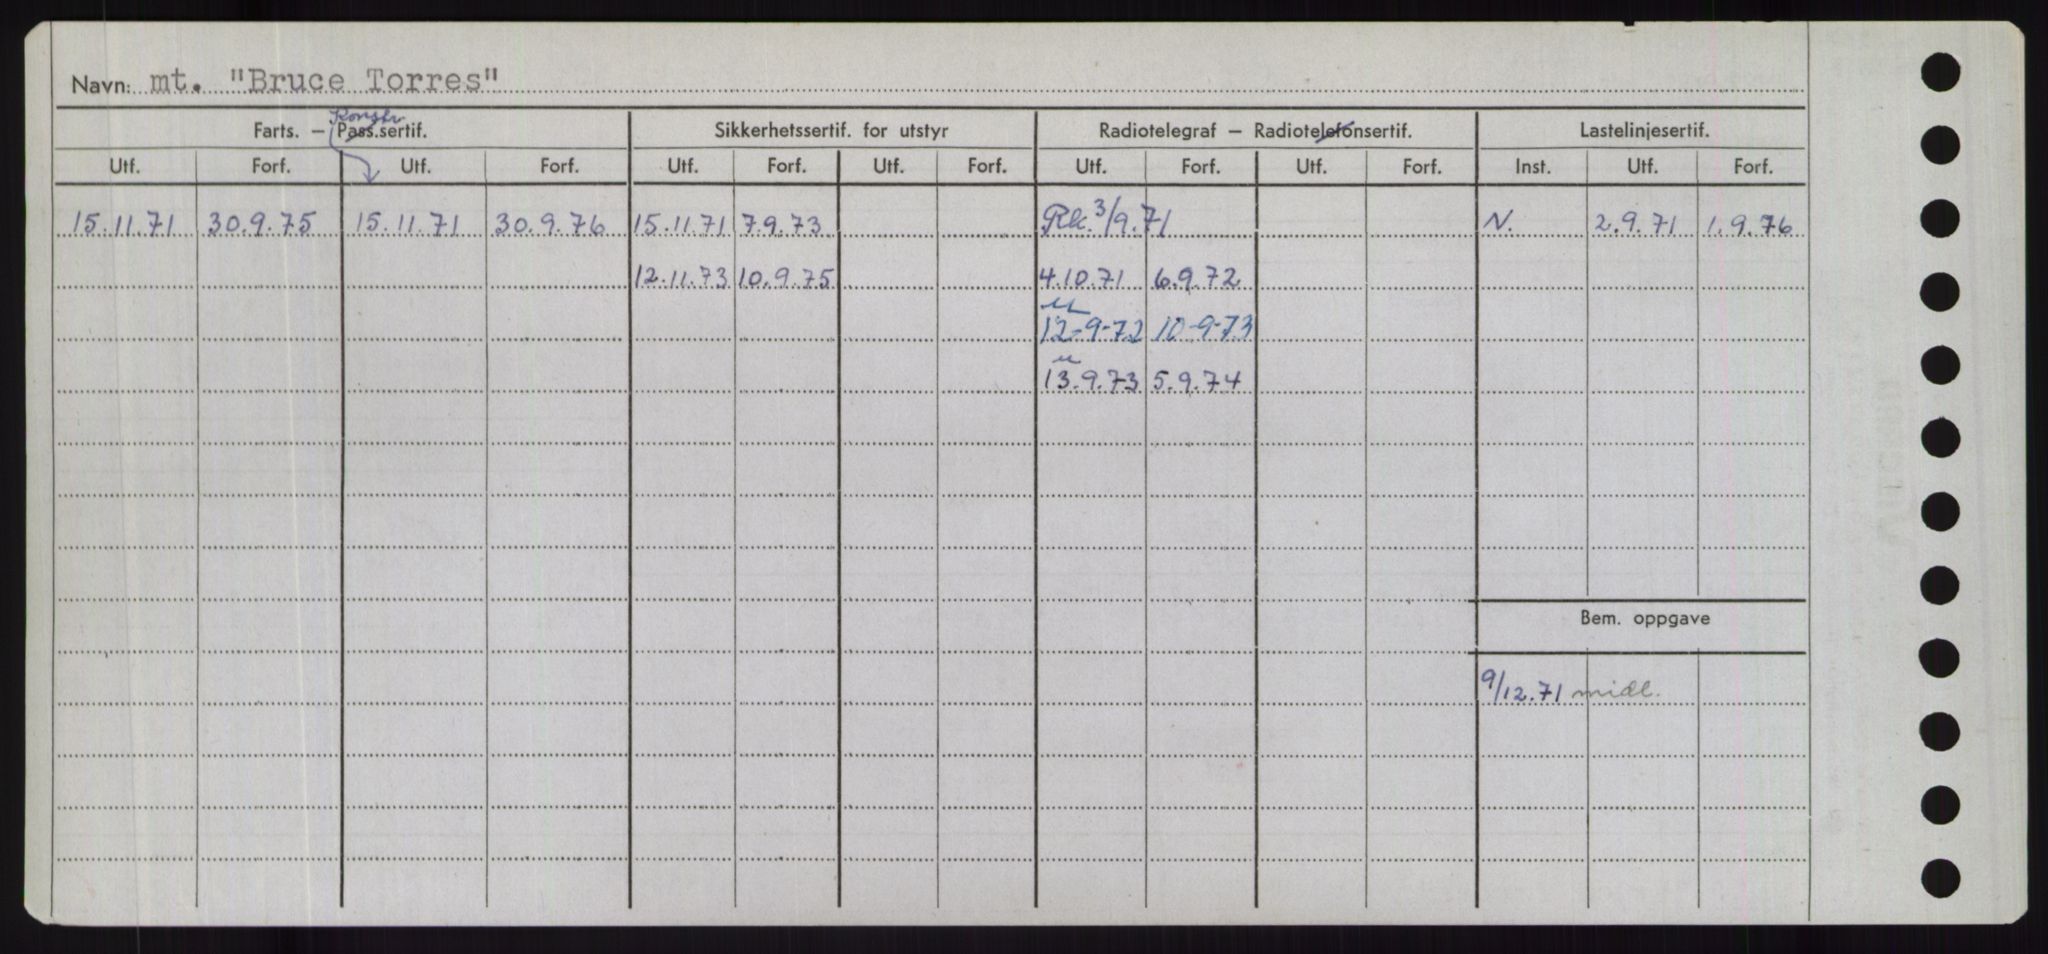 Navn: mt. "Bruce Torres"
Konstr
Farts. – Pass.sertif. Sikkerhetssertif. for utstyr Radiotelegraf – Radiotelefonsertif. Lastelinjesertif.
Utf. Forf. Utf. Forf. Utf. Forf. Utf. Forf. Utf. Forf. Utf. Forf. Inst. Utf. Forf.
15.11.71 30.9.75 15.11.71 30.9.76 15.11.71 7.9.73 Rk. 3/9.71 N. 2.9.71 1.9.76
12.11.73 10.9.75 4.10.71 6.9.72
12-9-72 10-9-73
13.9.73 5.9.74
Bem. oppgave
9/12.71 midl.